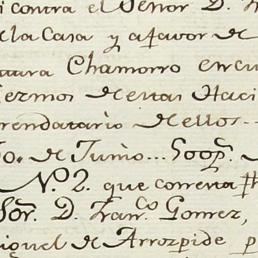 i contra el Señor D.
de la Casa y afavor de
Chamorro en cu
ermos de estas Haci
rendatario de ellos
o. de Junio...
N.º 2. que comenta
Sor. D. Fran.co Gomez,
iguel de Arrozpide p